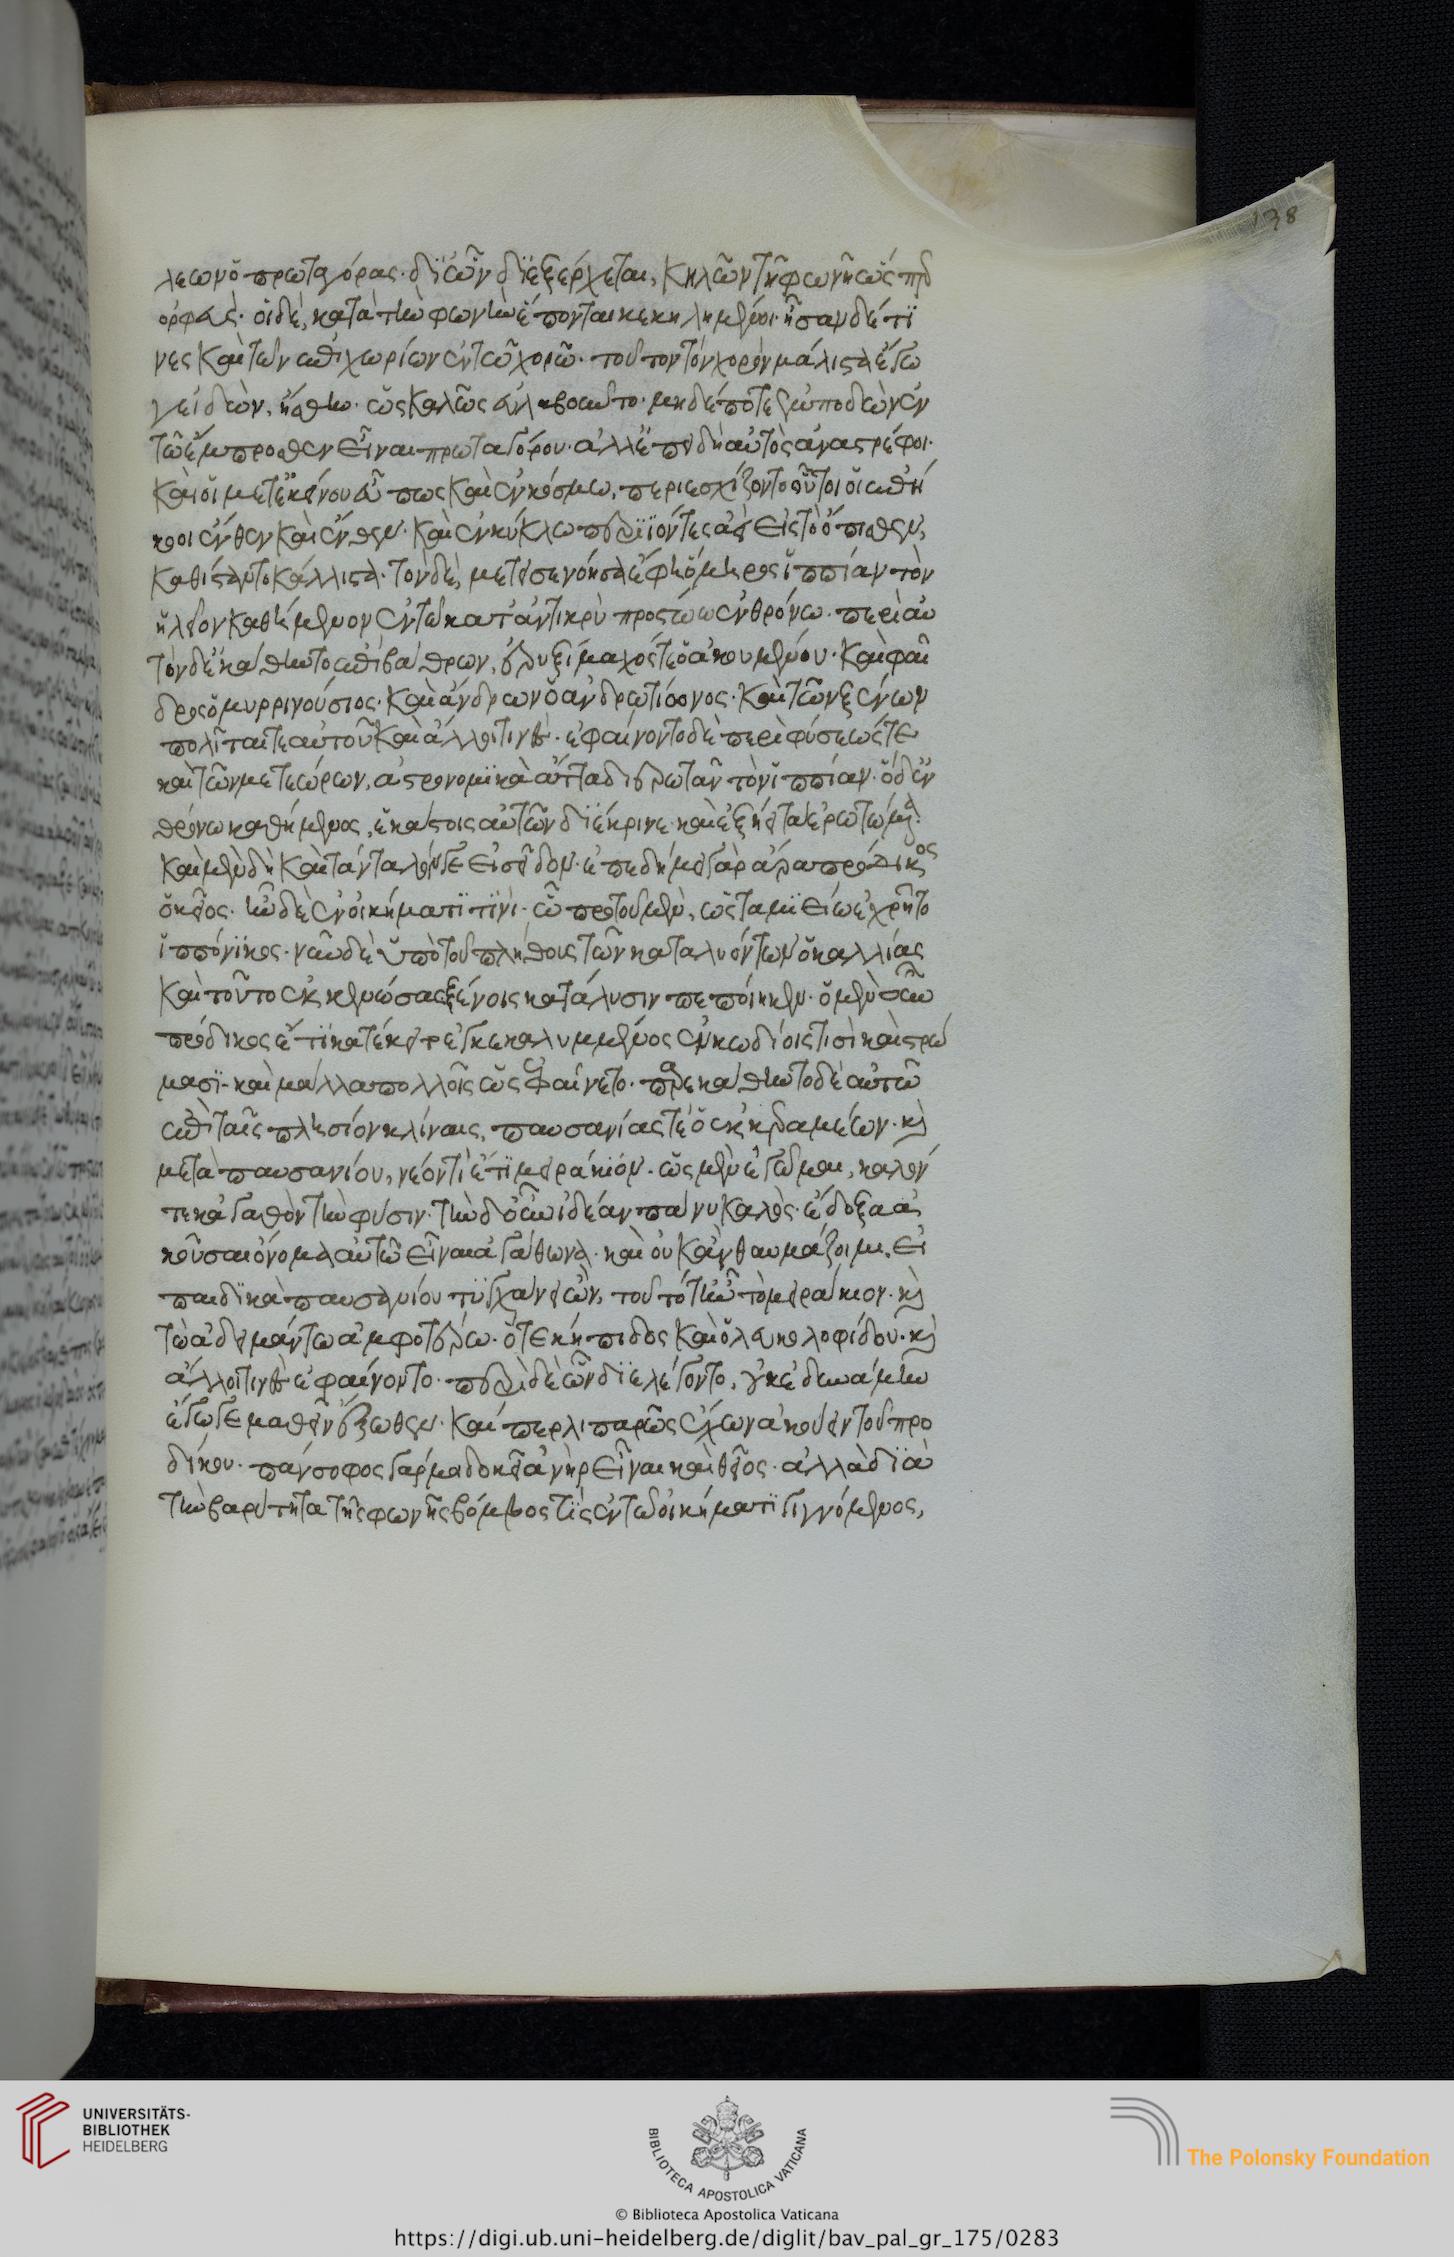 λεων ὁ πρωταγόρας· δι' ὧν διεξέρχεται, κηλῶν τῆ φωνῆ ὥσπερ
ὀρφεύς· οἱ δὲ, κατὰ τὴν φωνὴν ἕπονται κεκηλημένοι· ἦσαν δέ τι
νες καὶ τῶν ἐπιχωρίων ἐν τῶ χορῶ· τοῦτον τὸν χορὸν μάλιστα ἔγω
γε ἰδὼν, ἥσθην· ὡς καλῶς εὐλαβοῦντο· μηδέποτε ἐμποδὼν ἐν
τῶ ἔμπροσθεν εἶναι πρωταγόρου· ἀλλ' ἐπειδὴ αὐτὸς ἀναστρέφοι·
καὶ οἱ μετ' ἐκείνου εὖ πως καὶ ἐν κόσμω, περιεσχίζοντο οὗτοι οἱ ἐπή
κοοι ἔνθεν καὶ ἔνθεν· καὶ ἐν κύκλω περιϊόντες ἀεὶ εἰς τὸ ὄπισθεν,
καθίσταντο κάλλιστα· τὸν δὲ, μετεισενόησα ἔφη ὅμηρος ἱππίαν τὸν
ἠλεῖον καθήμενον ἐν τῶ κατ' ἀντικρὺ προστώω ἐν θρόνω· περὶ αὐ
τὸν δ' ἐκάθηντο ἐπὶ βάθρων, ἐρυξίμαχός τε ὁ ἀκουμενοῦ· καὶ φαῖ
δρος ὁ μυρρινούσιος· καὶ ἄνδρων ὁ ἀνδροτίωνος· καὶ τῶν ξένων
πολῖταί τε αὐτοῦ καὶ ἄλλοι τινές· ἐφαίνοντο δὲ περὶ φύσεώς τε
καὶ τῶν μετεώρων, ἀστρονομϊκὰ ἄττα διερωτᾶν τὸν ἱππίαν· ὁ δ' ἐν
θρόνω καθήμενος, ἑκάστοις αὐτῶν διέκρινε καὶ ἐξήει τὰ ἐρωτώμενα·
καὶ μὲν δὴ καὶ τάνταλόν γε εἰσεῖδον· ἐπεδήμει γὰρ ἄρα πρόδικος
ὁ κεῖος· ἦν δὲ ἐν οἰκήματί τινι· ὧ πρὸ τοῦ μὲν, ὡς ταμιείω ἐχρῆτο
ἱππόνικος· νῦν δὲ ὑπὸ τοῦ πλήθους τῶν καταλυόντων ὁ καλλίας
καὶ τοῦτο ἐκκενώσας ξένοις κατάλυσιν πεποίηκεν· ὁ μὲν οὖν
πρόδικος ἔτι κατέκειτο ἐγκεκαλυμμένος ἐν κωδίοις τισὶ καὶ στρώ
μασϊ· καὶ μάλλα πολλοῖς ὡς ἐφαίνετο· παρεκάθηντο δὲ αὐτῶ
ἐπὶ ταῖς πλησίον κλίναις, παυσανίας τε ὁ ἐκ κεραμέων· καὶ
μετὰ παυσανίου, νέον τι ἔτι μειράκιον· ὡς μὲν ἐγῶμαι, καλόν
τε κἀγαθὸν τὴν φύσιν· τὴν δ' οὖν ἰδέαν πάνυ καλός· ἔδοξα ἀ
κοῦσαι ὄνομα αὐτῶ εἶναι ἀγάθωνα· καὶ οὐκ ἂν θαυμάζοιμι, εἰ
παιδϊκὰ παυσανίου τυγχάνει ὢν, τοῦτό τ' ἦν τὸ μειράκιον· καὶ
τὼ ἀδειμάντω ἀμφοτέρω· ὅ τε κήπιδος καὶ ὁ λευκολοφίδου· καὶ
ἄλλοι τινὲς ἐφαίνοντο· περὶ δὲ ὧν διελέγοντο, οὐκ ἐδυνάμην
ἔγωγε μαθεῖν ἔξωθεν· καί περ λιπαρῶς ἔχων ἀκούειν τοῦ προ
δίκου· πάνσοφος γάρ μοι δοκεῖ ἁνὴρ εἶναι καὶ θεῖος· ἀλλὰ διὰ
τὴν βαρύτητα τῆς φωνῆς βόμβος τὶς ἐν τῶ οἰκήματι γιγνόμενος,
178
UNIVERSITÄTS-
BIBLIOTHEK
HEIDELBERG
BIBLIOTECA APOSTOLICA VATICANA
The Polonsky Foundation
© Biblioteca Apostolica Vaticana
https://digi.ub.uni-heidelberg.de/diglit/bav_pal_gr_175/0283